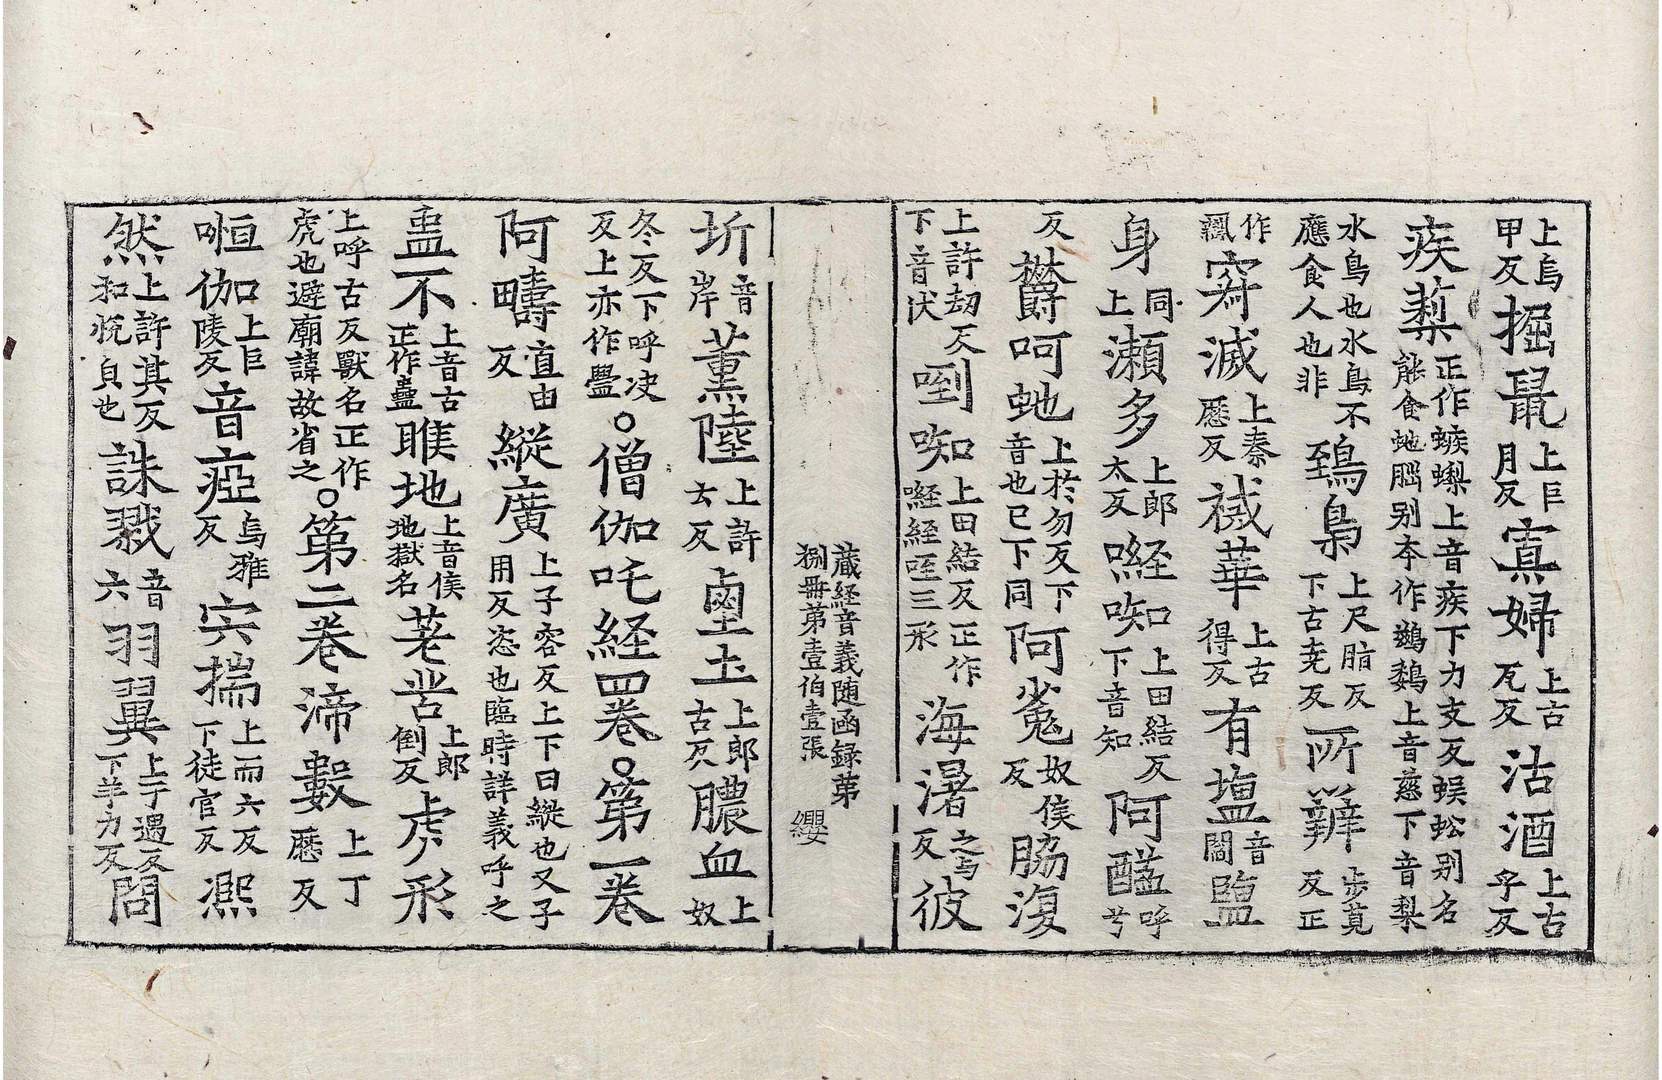 上烏甲反掘鼠上巨月反寡婦上古瓦反沽酒上古乎反
疾蔾正作螏蟍上音疾下力支反蜈蚣别名能食虵腦别本作鷀鵹上音慈下音梨
水鳥也水鳥不應食人也非鵄梟上尺脂反下古尭反所辦步莧反正
作瓣穿滅上秦歷反祴華上古得反有塩音閻䀋
身同上瀬多上郎太反㘑㗌上田結反下音知阿醯呼兮
反欝呵虵上於勿反下音也巳下同阿㝹奴侯反脇復
上許刼反下音伏㗚㗌上田結反正作㘑絰咥三形海渚之与反彼
藏経音義随函録第捌冊第壹伯壹張 纓
圻音岸薰陸上許云反鹵土上郎古反膿血上奴
冬反下呼决反上亦作癑○僧伽吒経四巻○第一巻
阿疇直由反縱廣上子容反上下曰縱也又子用反恣也臨時詳義呼之
蛊不上音古正作蠱睺地上音侯地獄名荖苦上郎倒反虎形
上呼古反獸名正作虎也避廟諱故省之○第二巻渧數上丁歷反
㘅伽上巨陵反音瘂烏雅反宍揣上而六反下徒官反凞
然上許其反和恱皃也誅戮音六羽翼上于遇反下羊力反問